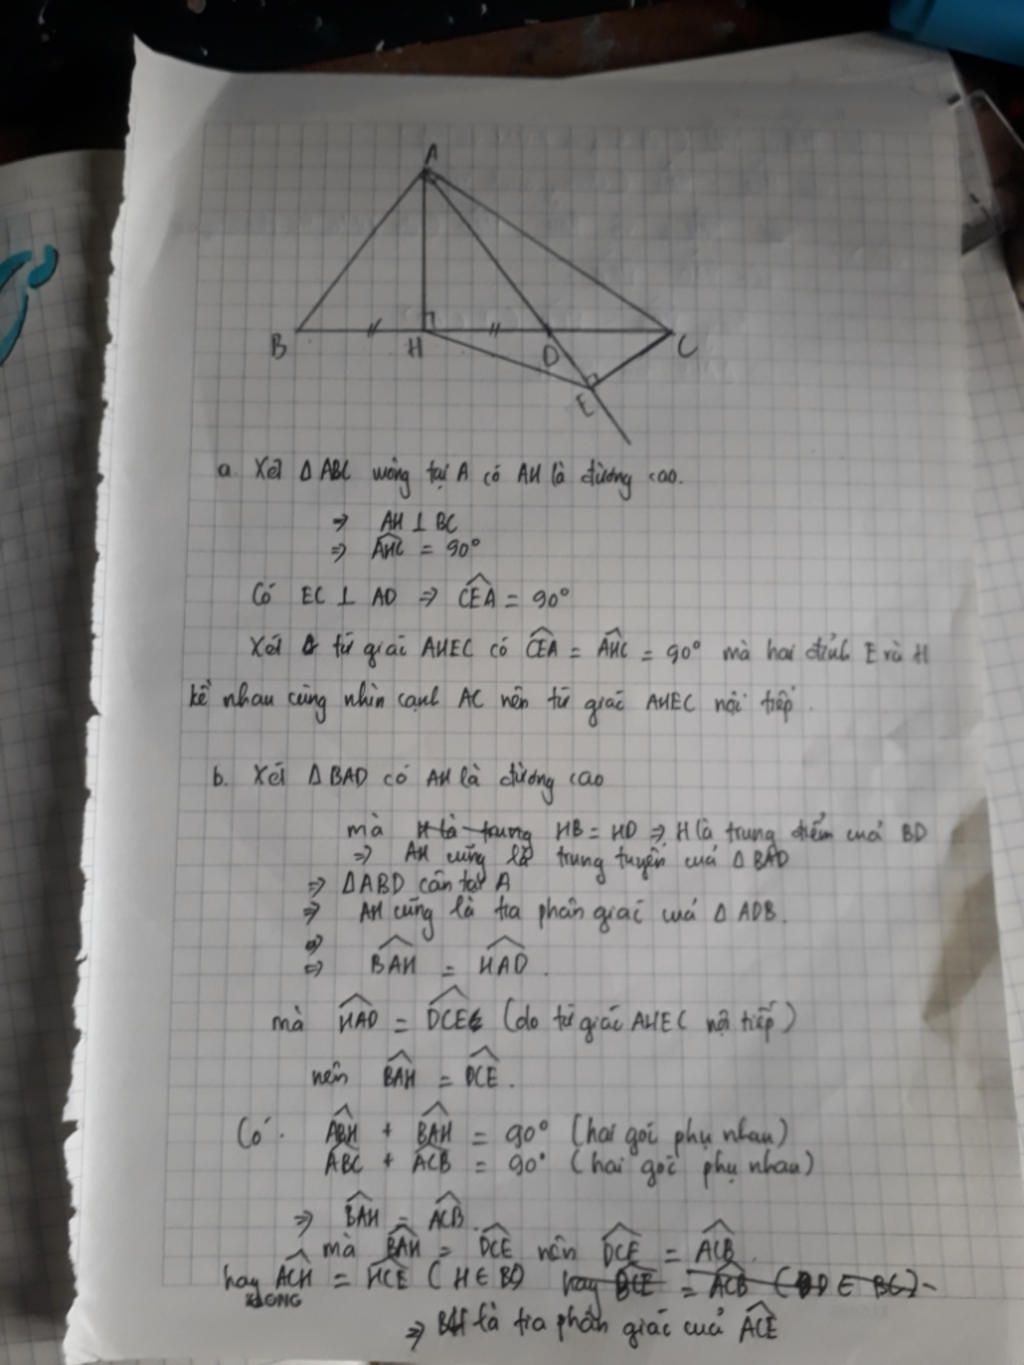 A
B
H
D
C
E
a. Xét Δ ABC vuông tại A có AH là đường cao.
⇒ AH ⊥ BC
⇒ \widehat{AHC} = 90°
Có EC ⊥ AD ⇒ \widehat{CEA} = 90°
Xét tứ giác AHEC có \widehat{CEA} = \widehat{AHC} = 90° mà hai đỉnh E và H
kề nhau cùng nhìn cạnh AC nên tứ giác AHEC nội tiếp.
b. Xét Δ BAD có AH là đường cao
mà H là trung HB = HD ⇒ H là trung điểm cuả BD
⇒ AH cũng là trung tuyến cuả Δ BAD
⇒ ΔABD cân tại A
⇒ AH cũng là tia phân giác cuả Δ ADB.
⇒
⇒ \widehat{BAH} = \widehat{HAD}.
mà \widehat{HAD} = \widehat{DCE} (do tứ giác AHEC nội tiếp)
nên \widehat{BAH} = \widehat{DCE}.
Có: \widehat{ABH} + \widehat{BAH} = 90° (hai góc phụ nhau)
\widehat{ABC} + \widehat{ACB} = 90° (hai góc phụ nhau)
⇒ \widehat{BAH} = \widehat{ACB}.
mà \widehat{BAH} = \widehat{DCE} nên \widehat{DCE} = \widehat{ACB}.
hay \widehat{ACH} = \widehat{HCE} (H ∈ BC) hay \widehat{DCE} = \widehat{ACB} (D ∈ BC)
KLONG
⇒ là tia phân giác cuả \widehat{ACE}